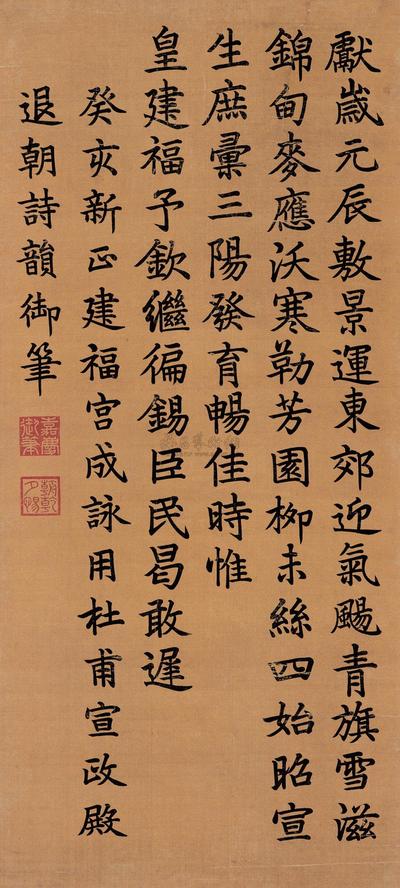 獻歲元辰敷景運東郊迎氣颺青旗雪滋
錦甸麥應沃寒勒芳園柳未絲四始昭宣
生庶彙三陽發育暢佳時惟
皇建福予欽繼徧錫臣民曷敢遲
癸亥新正建福宮成詠用杜甫宣政殿
退朝詩韻御筆
嘉慶御筆
朝乾夕惕